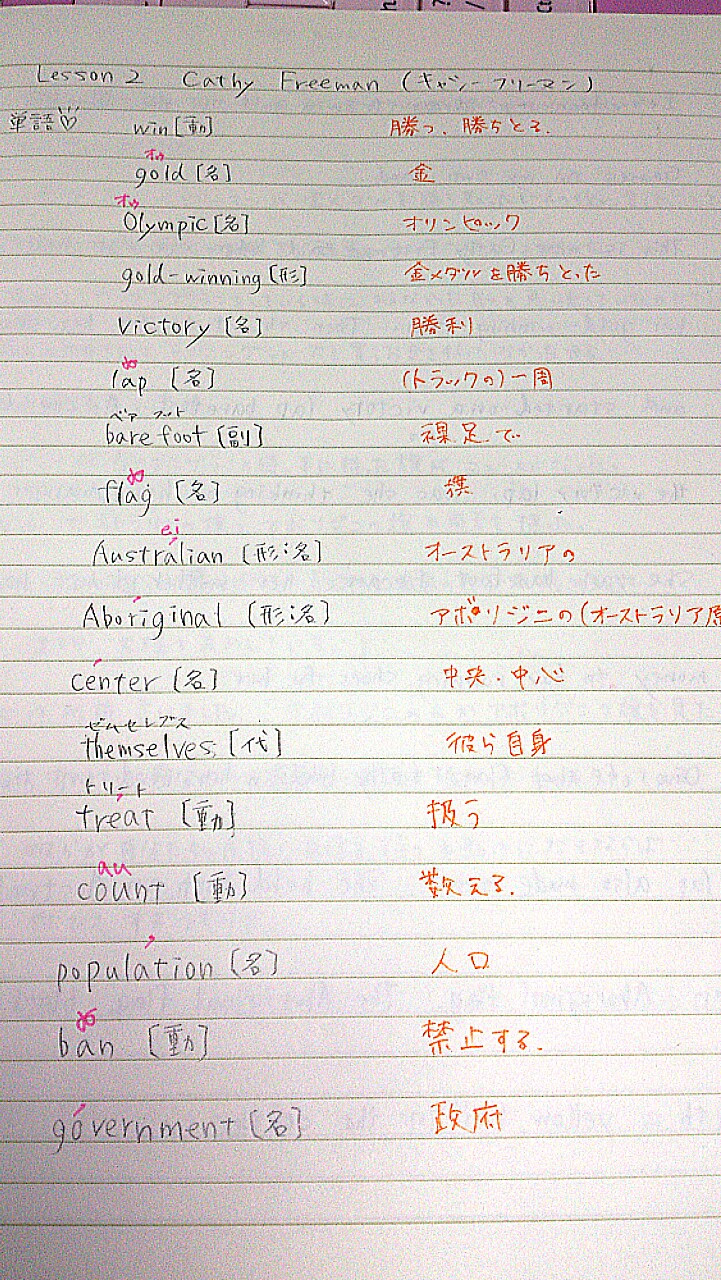 Lesson 2 Cathy Freeman (キャシーフリーマン)
単語♡ win [動] 勝つ、勝ちとる.
オウ
gold [名] 金
オゥ
Olympic [名] オリンピック
gold-winning [形] 金メダルを勝ちとった
victory [名] 勝利
æ
lap [名] (トラックの)一周
ベア フット
bare foot [副] 裸足で
æ
flag [名] 旗
ei
Australian [形;名] オーストラリアの
Aboriginal [形;名] アボリジニの(オーストラリア原
center [名] 中央・中心
ゼムセレブス
themselves [代] 彼ら自身
トリート
treat [動] 扱う
au
count [動] 数える.
population [名] 人口
æ
ban [動] 禁止する.
government [名] 政府